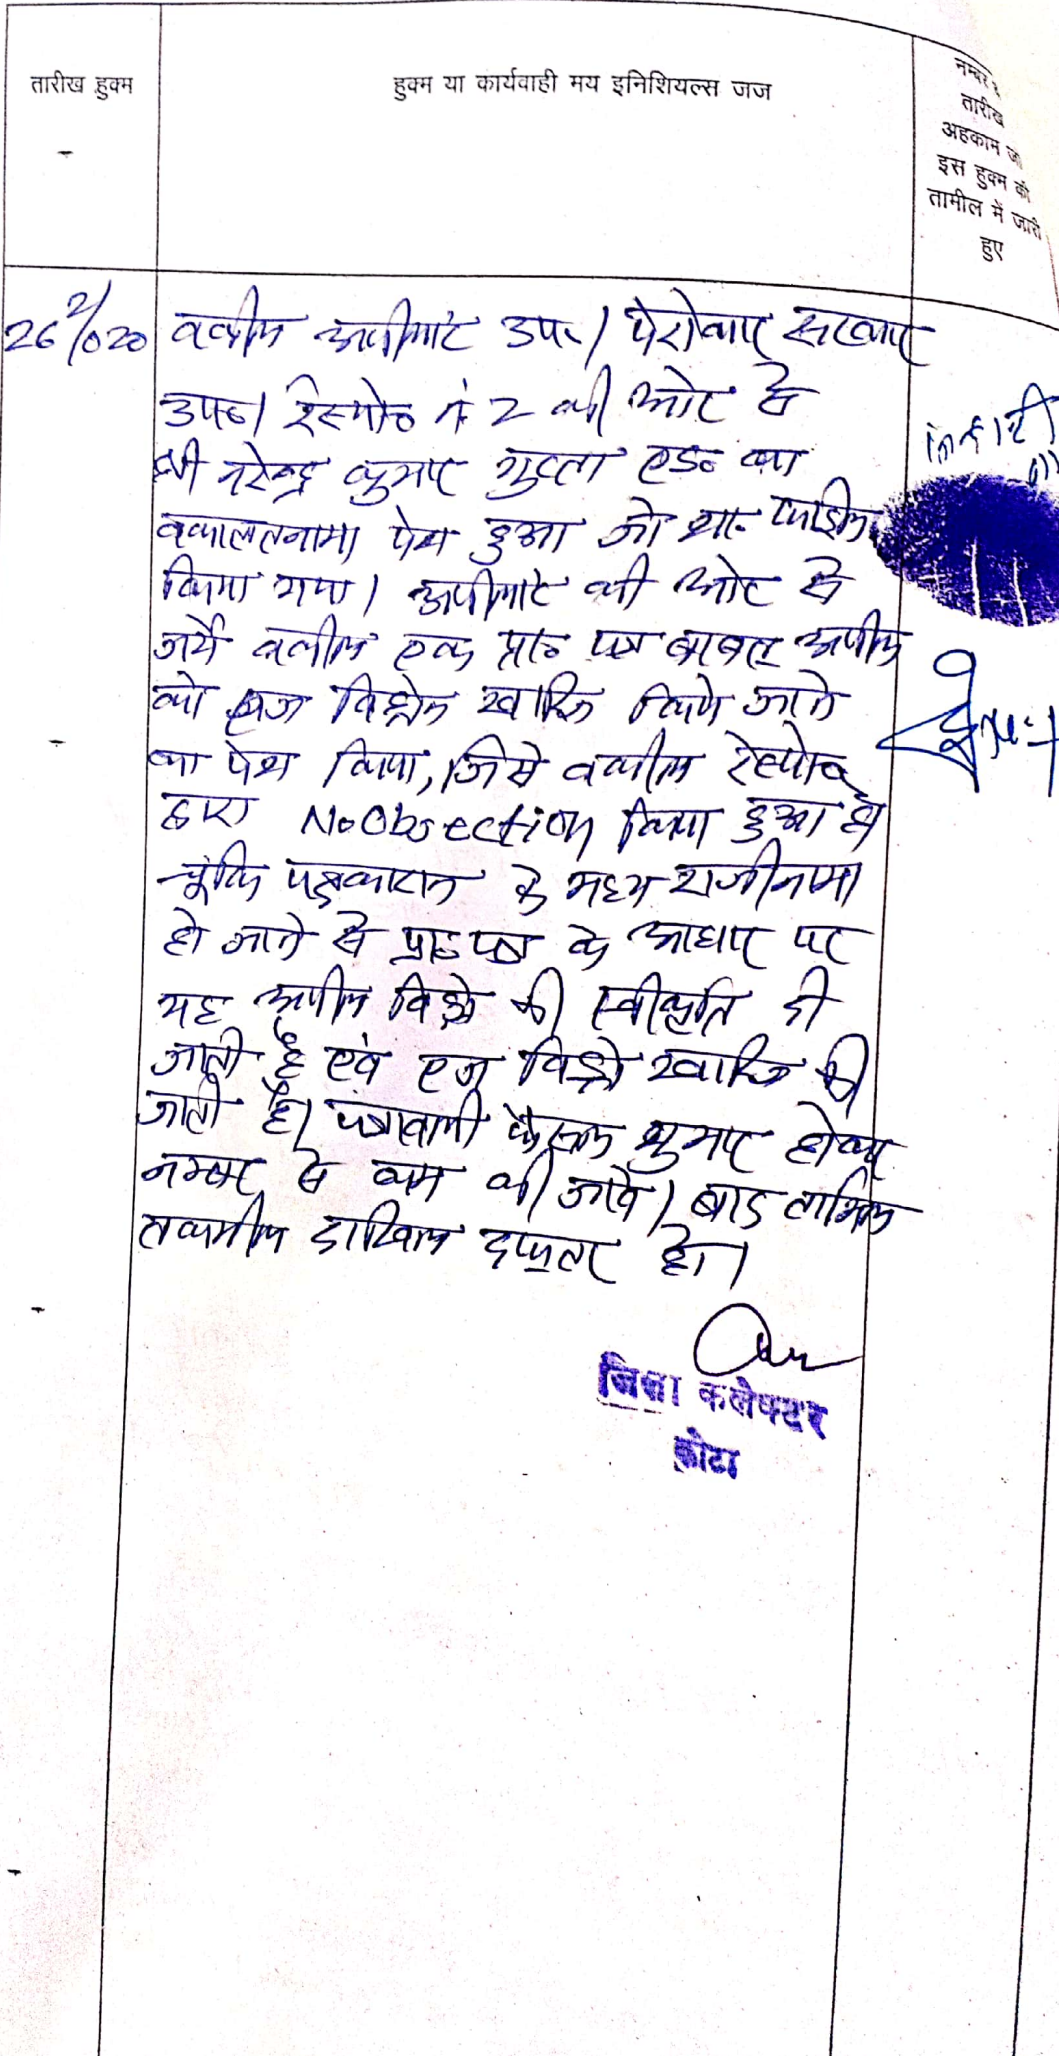 तारीख हुक्म
हुक्म या कार्यवाही मय इनिशियल्स जज
नम्बर
तारीख
अहकाम जो
इस हुक्म की
तामील में जारी
हुए
26/2/2020
वकील अपीलांट उप०। पेरोकार सरकार
उप०। रेस्पो० नं 2 की ओर से
श्री नरेन्द्र कुमार गुप्ता एड० का
वकालतनामा पेश हुआ जो शा० फाईल
किया गया। अपीलांट की ओर से
जर्ये वकील एक प्रा० पत्र बाबत् अपील
को एज विड्रोन खारिज किये जाने
का पेश किया, जिसे वकील रेस्पो०
द्वारा No Obsection किया हुआ है।
चूंकि पक्षकारान के मध्य राजीनामा
हो जाने से प्रा० पत्र के आधार पर
यह अपील विड्रो की स्वीकृति दी
जाती है एवं एज विड्रो खारिज की
जाती है। पत्रावली फैसल शुमार होकर
नम्बर से कम की जावे। बाद तामिल
तकमील दाखिल दफ्तर हो।
जिला कलेक्टर
कोटा